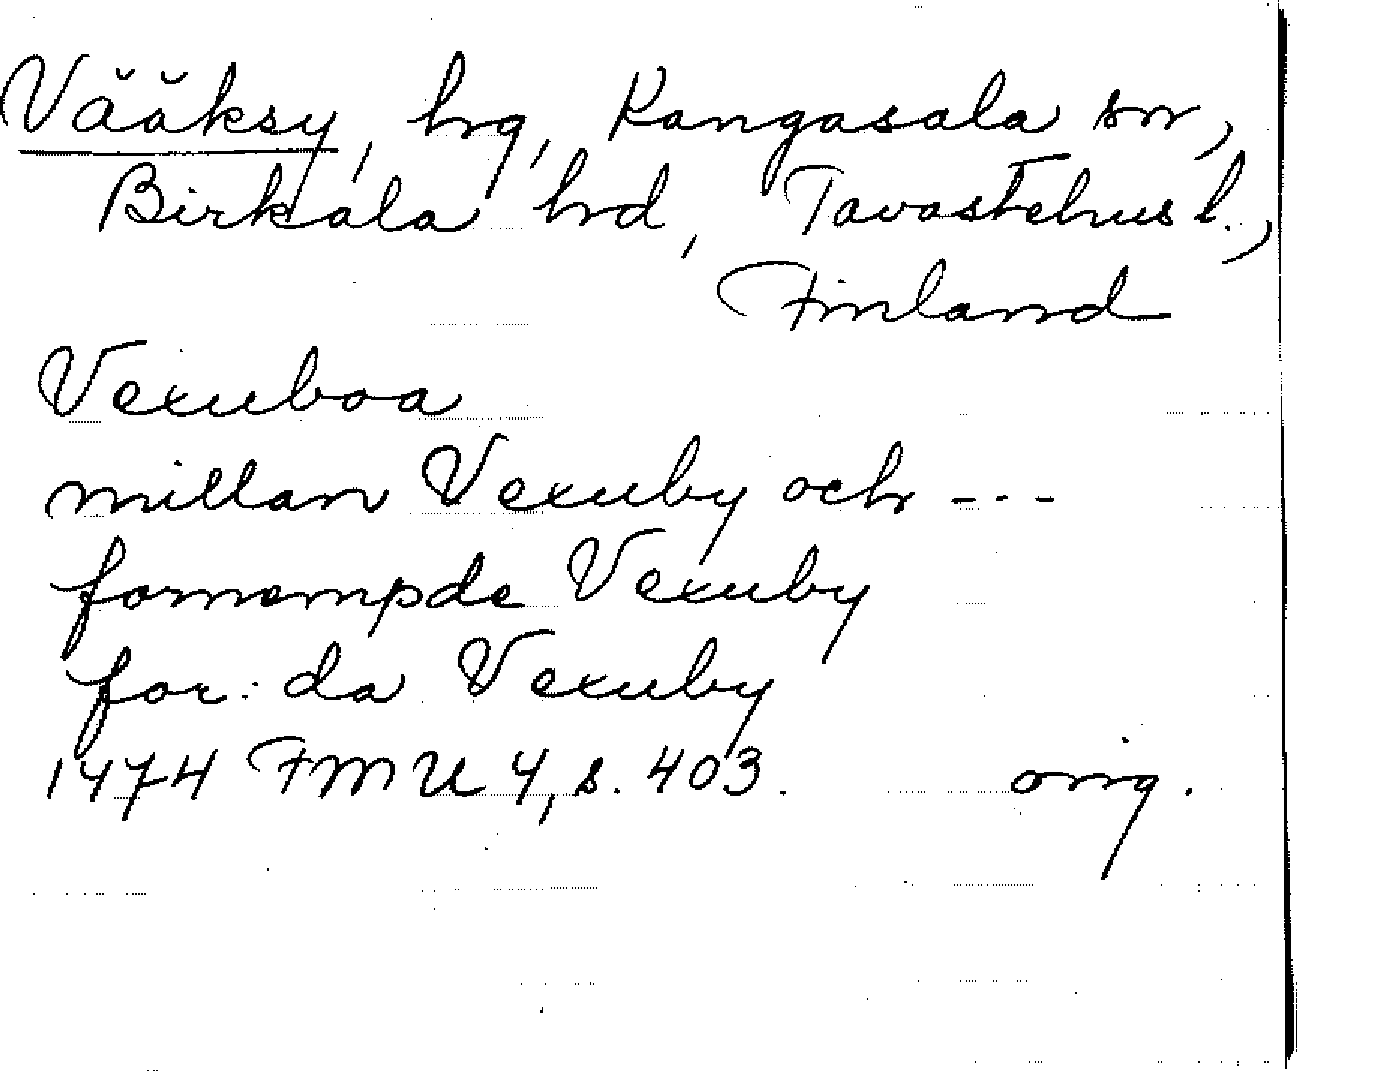 Vääksy, hrg, Kangasala sn,
Birkala hrd, Tavastehus l.,
Finland
Vexuboa
millan Vexuby och ---
fornempde Vexuby
for: da Vexuby
1474 FMU 4, s. 403. orig.